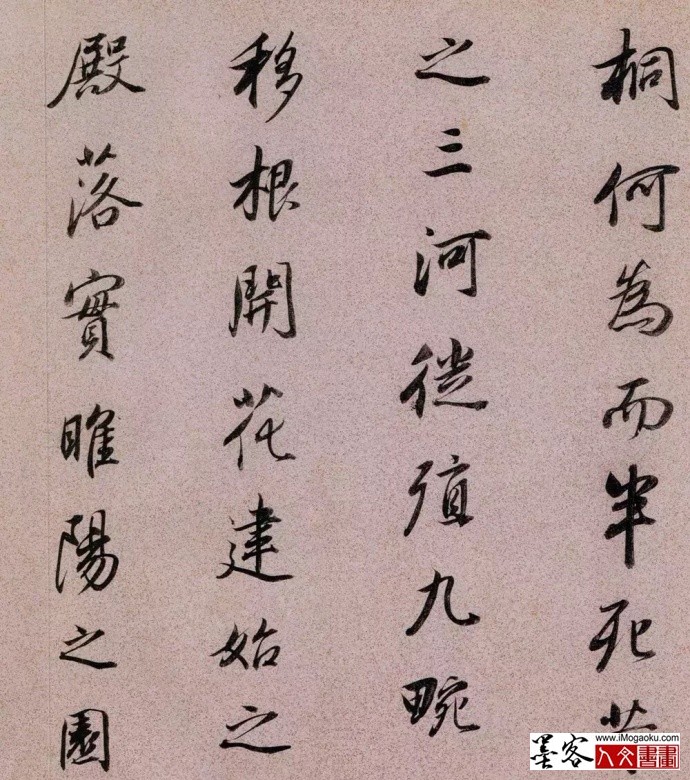 桐何為而半死若
之三河徙殖九畹
移根開花建始之
殿落實睢陽之園
www.iMogaoku.com
墨客人文書畫